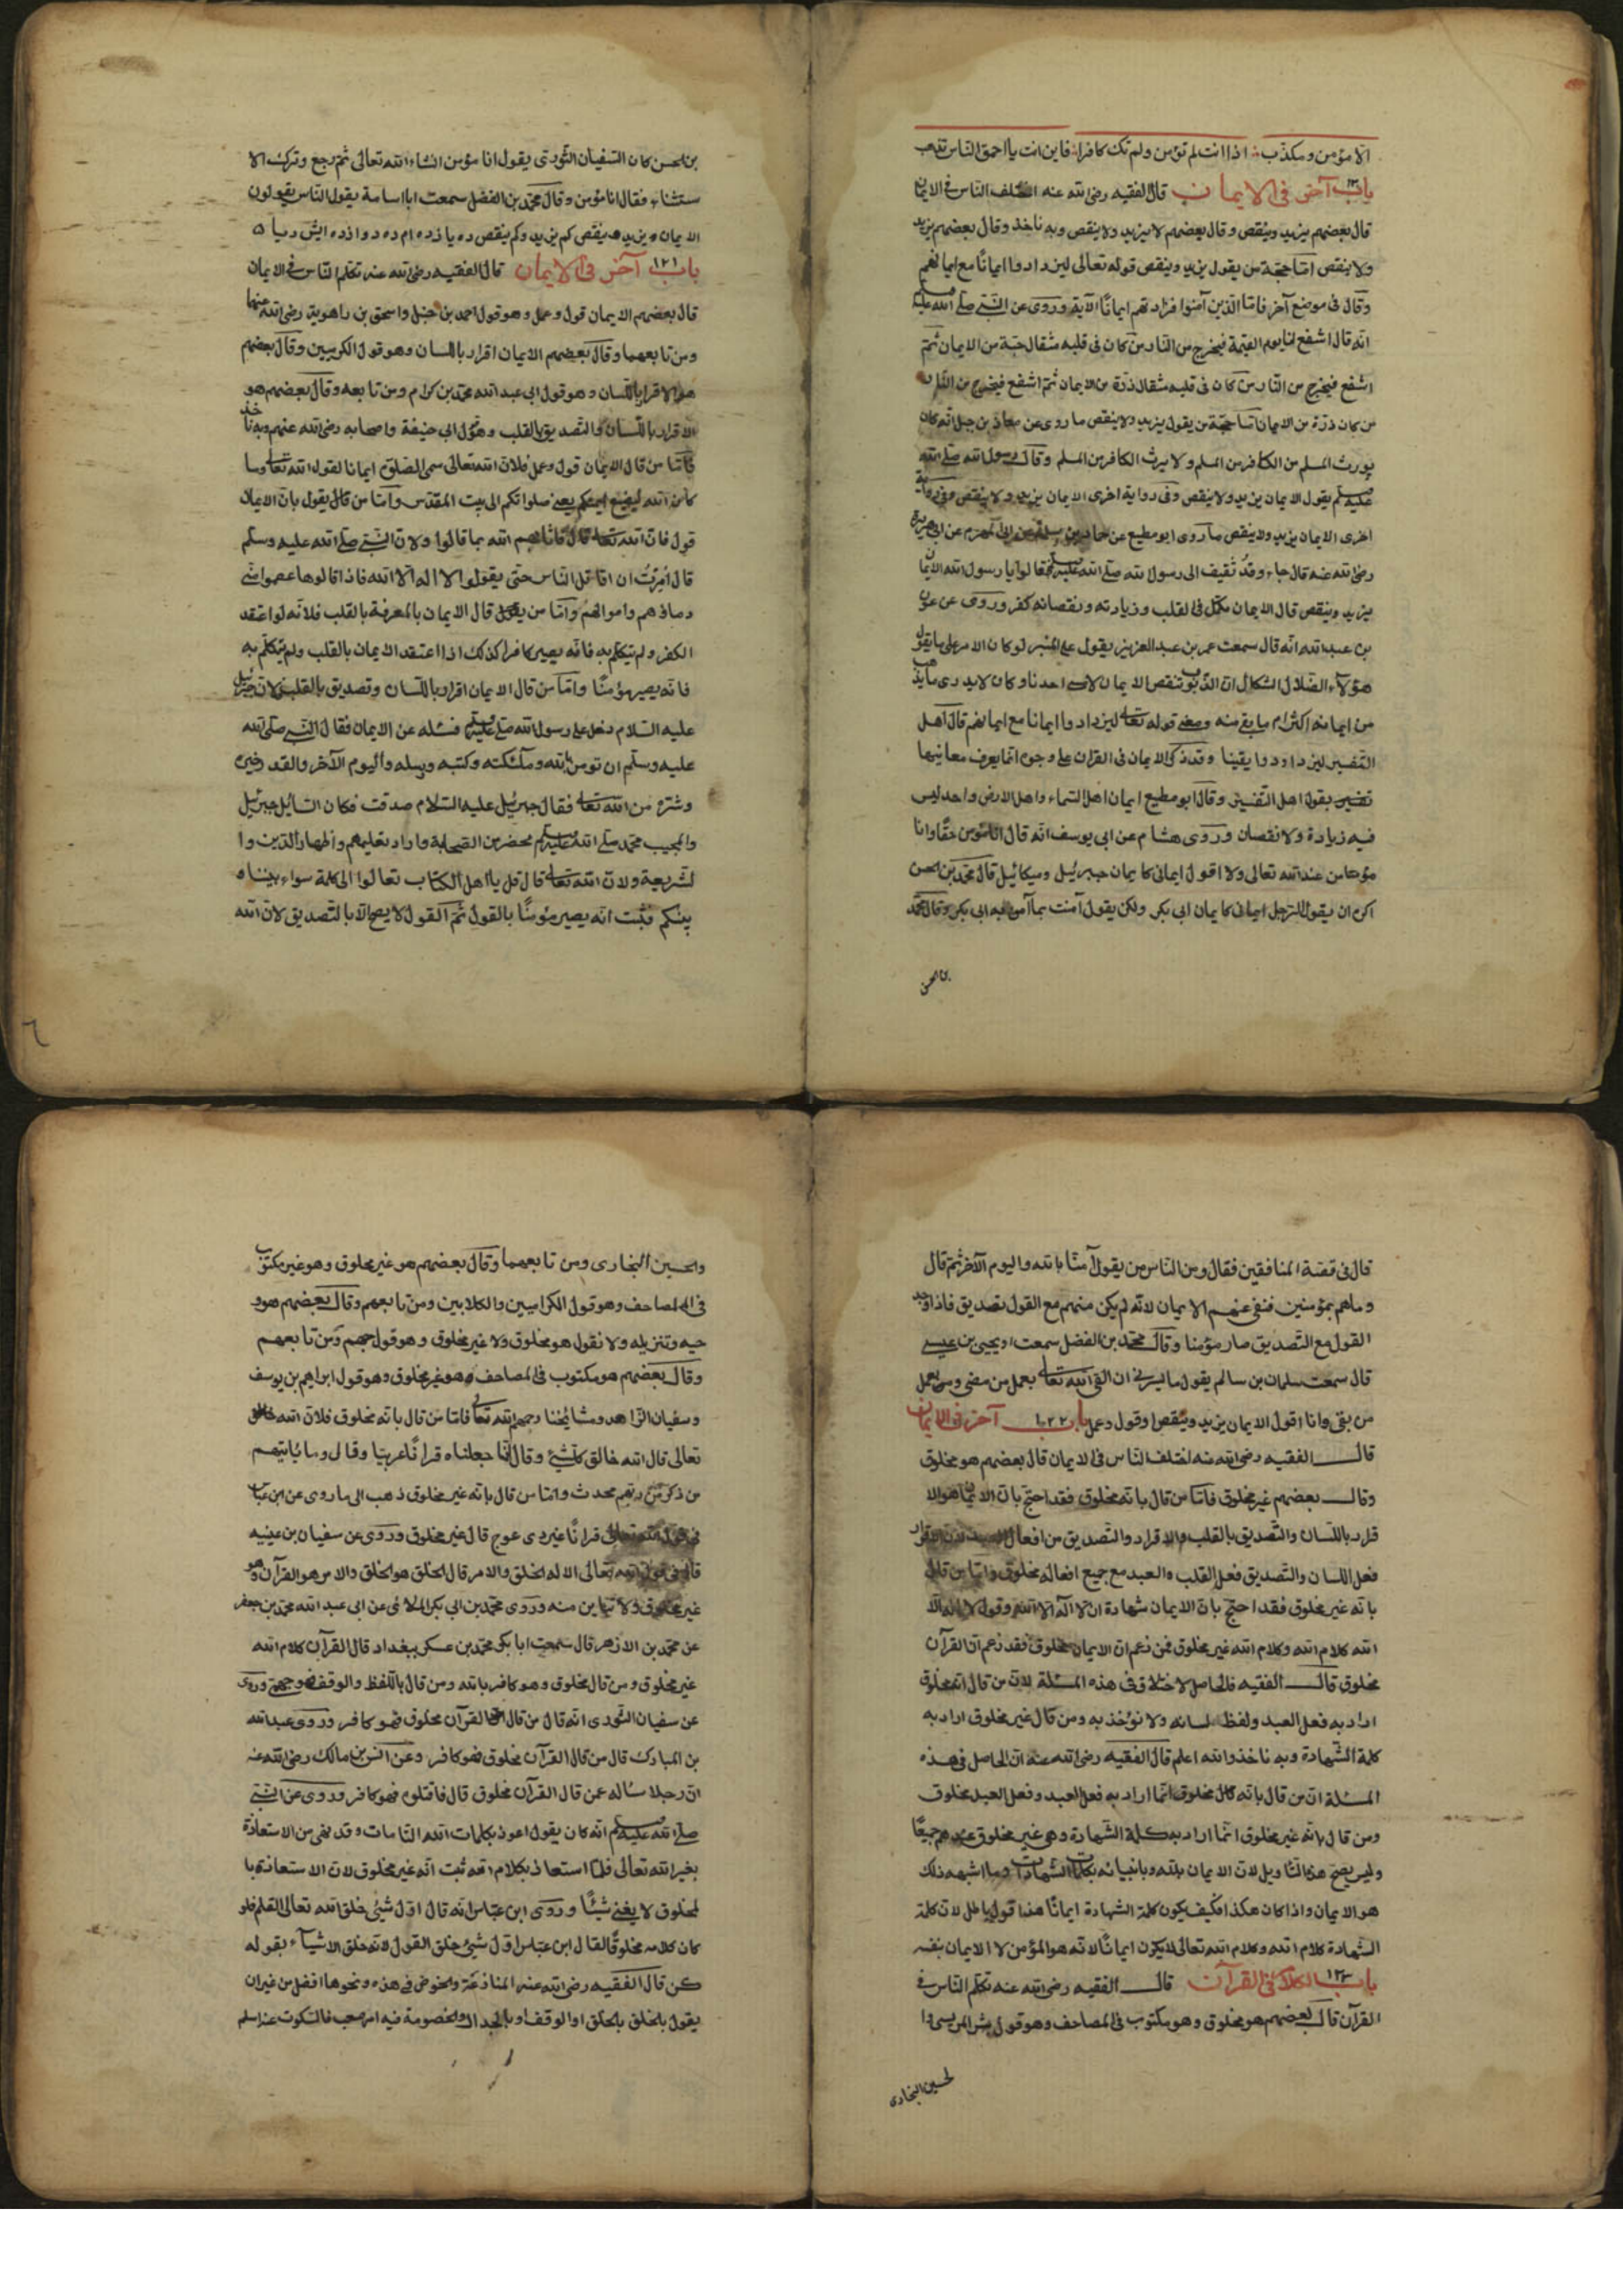 الا مؤمن ومكذب اذا انت لم تؤمن ولم تك كافرا فاين انت يا احمق الناس تذهب
باب آخر فى الايمان قال الفقيه رضى الله عنه اختلف الناس فى الايمان
قال بعضهم يزيد وينقص وقال بعضهم لا يزيد ولا ينقص وبه ناخذ وقال بعضهم يزيد
ولا ينقص اما حجة من يقول يزيد وينقص قوله تعالى ليزدادوا ايمانا مع ايمانهم
وقال فى موضع آخر فاما الذين آمنوا فزادتهم ايمانا الآية وروى عن النبى صلى الله عليه
انه قال اشفع انا يوم القيمة فيخرج من النار من كان فى قلبه مثقال حبة من الايمان ثم
اشفع فيخرج من النار من كان فى قلبه مثقال ذرة من الايمان ثم اشفع فيخرج من النار
من كان ذرة من الايمان اما حجة من يقول يزيد ولا ينقص ما روى عن معاذ بن جبل انه كان
يورث المسلم من الكافر من المسلم ولا يرث الكافر من المسلم وقال رسول الله صلى الله
عليه وسلم يقول الايمان يزيد ولا ينقص وفى رواية اخرى الايمان يزيد ولا ينقص وفى رواية
اخرى الايمان يزيد ولا ينقص ما روى ابو مطيع عن حماد بن سلمة عن ابى المهزم عن ابى هريرة
رضى الله عنه قال جاء وفد ثقيف الى رسول الله صلى الله عليه وسلم فقالوا يا رسول الله الايمان
يزيد وينقص قال الايمان مكمل فى القلب وزيادته ونقصانه كفر وروى عن عون
بن عبد الله انه قال سمعت عمر بن عبد العزيز يقول على المنبر لو كان الامر على ما يقول
هؤلاء الضلال الشكال ان الذنوب تنقص الايمان لامسى احدنا وكان لا يدرى ما يذهب
من ايمانه اكثر ام ما بقى منه ومعنى قوله تعالى ليزدادوا ايمانا مع ايمانهم قال اهل
التفسير ليزدادوا يقينا وقد ذكر الايمان فى القران على وجوه انما يعرف معانيها
تفسير بقول اهل التفسير وقال ابو مطيع ايمان اهل السماء واهل الارض واحد ليس
فيه زيادة ولا نقصان وروى هشام عن ابى يوسف انه قال انا مؤمن حقا وانا
مؤمن عند الله تعالى ولا اقول ايمانى كايمان جبرئيل وميكائيل قال محمد بن الحسن
اكره ان يقول الرجل ايمانى كايمان ابى بكر ولكن يقول آمنت بما آمن به ابى بكر وقال محمد
بن الحسن
بن الحسن كان السفيان الثورى يقول انا مؤمن انشاء الله تعالى ثم رجع وترك الا
ستثناء فقال انا مؤمن وقال محمد بن الفضل سمعت ابا اسامة يقول الناس يقولون
الايمان يزيد وينقص كم يزيد وكم ينقص ده يازده ام ده دوازده
باب ١٢١ آخر فى الايمان قال الفقيه رضى الله عنه تكلم الناس فى الايمان
قال بعضهم الايمان قول وعمل وهو قول احمد بن حنبل واسحق بن راهوية رضى الله عنهما
ومن تابعهما وقال بعضهم الايمان اقرار باللسان وهو قول الكرميين وقال بعضهم
هو الاقرار باللسان وهو قول ابى عبد الله محمد بن كرام ومن تابعه وقال بعضهم هو
الاقرار باللسان والتصديق بالقلب وهو قول ابى حنيفة واصحابه رضى الله عنهم وبه ناخذ
فاما من قال الايمان قول وعمل فلان الله تعالى سمى الصلوة ايمانا لقول الله تعالى وما
كان الله ليضيع ايمانكم يعنى صلواتكم الى بيت المقدس واما من قال يقول بان الايمان
قول فان الله تعالى قال فاثابهم الله بما قالوا ولان النبى صلى الله عليه وسلم
قال امرت ان اقاتل الناس حتى يقولوا لا اله الا الله فاذا قالوها عصموا منى
دماؤهم واموالهم واما من قال الايمان بالمعرفة بالقلب فلانه لو اعتقد
الكفر ولم يتكلم به فانه يصير كافرا كذلك اذا اعتقد الايمان بالقلب ولم يتكلم به
فانه يصير مؤمنا واما من قال الايمان اقرار باللسان وتصديق بالقلب لان جبرئيل
عليه السلام دخل على رسول الله صلى الله عليه وسلم فسئله عن الايمان فقال النبى صلى الله
عليه وسلم ان تومن بالله وملئكته وكتبه ورسله واليوم الآخر والقدر خيره
وشره من الله تعالى فقال جبرئيل عليه السلام صدقت فكان السائل جبرئيل
والمجيب محمد صلى الله عليه وسلم بمحضر من الصحابة واراد تعليمهم واظهار الدين وا
لشريعة ولان الله تعالى قال قل يا اهل الكتاب تعالوا الى كلمة سواء بيننا و
بينكم فثبت انه يصير مؤمنا بالقول ثم القول لا يصح الا بالتصديق لان الله
٦
قال فى قصة المنافقين فقال ومن الناس من يقول آمنا بالله واليوم الآخر ثم قال
وما هم بمؤمنين فنفى عنهم الايمان لانه لم يكن منهم مع القول تصديق فاذا وجد
القول مع التصديق صار مؤمنا وقال محمد بن الفضل سمعت يحيى بن عيسى
قال سمعت سلمان بن سالم يقول ما يسرنى ان القى الله تعالى بعمل من مضى وعمل
من بقى وانا اقول الايمان يزيد وينقص او قول وعمل باب ١٢٢ آخر فى الايمان
قال الفقيه رضى الله عنه اختلف الناس فى الايمان قال بعضهم هو مخلوق
وقال بعضهم غير مخلوق فاما من قال بانه مخلوق فقد احتج بان الايمان هو الا
قرار باللسان والتصديق بالقلب والاقرار والتصديق من افعال العبد لان الاقرار
فعل اللسان والتصديق فعل القلب والعبد مع جميع افعاله مخلوق واما من قال
بانه غير مخلوق فقد احتج بان الايمان شهادة ان لا اله الا الله وقول لا اله الا
الله كلام الله وكلام الله غير مخلوق فمن زعم ان الايمان مخلوق فقد زعم ان القرآن
مخلوق قال الفقيه فالحاصل لاختلاف فى هذه المسئلة لان من قال انه مخلوق
اراد به فعل العبد ولفظ لسانه ولا نؤخذ به ومن قال غير مخلوق اراد به
كلمة الشهادة وبه ناخذ والله اعلم قال الفقيه رضى الله عنه ان الحاصل فى هذه
المسئلة ان من قال بانه كان مخلوق انما اراد به فعل العبد وفعل العبد مخلوق
ومن قال بانه غير مخلوق انما اراد به كلمة الشهادة وهى غير مخلوق عندهم جميعا
وليس يصح هذا التاويل لان الايمان بالله وباتيانه بكلمات الشهادات وما اشبهه ذلك
هو الايمان واذا كان هكذا فكيف يكون كلمة الشهادة ايمانا هذا قول باطل لان كلمة
الشهادة كلام الله وكلام الله تعالى لا يكون ايمانا لانه هو المؤمن لا الايمان بنفسه
باب ١٢٣ الكلام فى القرآن قال الفقيه رضى الله عنه تكلم الناس فى
القرآن قال بعضهم هو مخلوق وهو مكتوب فى المصاحف وهو قول بشر المريسى وا
لحسين النجارى
والحسين النجارى ومن تابعهما وقال بعضهم هو غير مخلوق وهو غير مكتوب
فى المصاحف وهو قول الكراميين والكلابين ومن تابعهم وقال بعضهم هو و
حيه وتنزيله ولا نقول هو مخلوق ولا غير مخلوق وهو قول جهم ومن تابعهم
وقال بعضهم هو مكتوب فى المصاحف وهو غير مخلوق وهو قول ابراهيم بن يوسف
وسفيان الزاهد ومشائخنا رحمهم الله تعالى فاما من قال بانه مخلوق فلان الله
تعالى قال الله خالق كل شئ وقال انا جعلناه قرانا عربيا وقال وما ياتيهم
من ذكر من ربهم محدث واما من قال بانه غير مخلوق ذهب الى ما روى عن ابن عباس
فى قول الله تعالى قرانا غير ذى عوج قال غير مخلوق وروى عن سفيان بن عيينه
قال فى قول الله تعالى الا له الخلق والامر قال الخلق هو الخلق والامر هو القرآن وهو
غير مخلوق ولا تباين منه وروى محمد بن ابى بكر عن ابى عبد الله محمد بن جعفر
عن محمد بن الازهر قال سمعت ابا بكر محمد بن عسكر ببغداد قال القرآن كلام الله
غير مخلوق ومن قال مخلوق وهو كافر بالله ومن قال باللفظ والوقف فهو جهمى وروى
عن سفيان الثورى انه قال من قال القرآن مخلوق فهو كافر وروى عبد الله
بن المبارك قال من قال القرآن مخلوق فهو كافر وعن انس بن مالك رضى الله عنه
ان رجلا ساله عمن قال القرآن مخلوق قال فاقتلوه فهو كافر وروى عن النبى
صلى الله عليه وسلم انه كان يقول اعوذ بكلمات الله التامات وقد نهى من الاستعاذة
بغير الله تعالى فلما استعاذ بكلام الله ثبت انه غير مخلوق لان الاستعاذة با
لمخلوق لا يغنى شيئا وروى ابن عباس انه قال اول شئ خلق الله تعالى القلم فلو
كان كلامه مخلوقا لقال ابن عباس اول شئ خلق القول لانه خلق الاشياء بقوله
كن قال الفقيه رضى الله عنه المنازعة والخوض فى هذه ونحوها افضل من غير ان
يقول بالخلق او الوقف او بالجدال والخصومة فيه امر صعب فالسكوت عنه اسلم